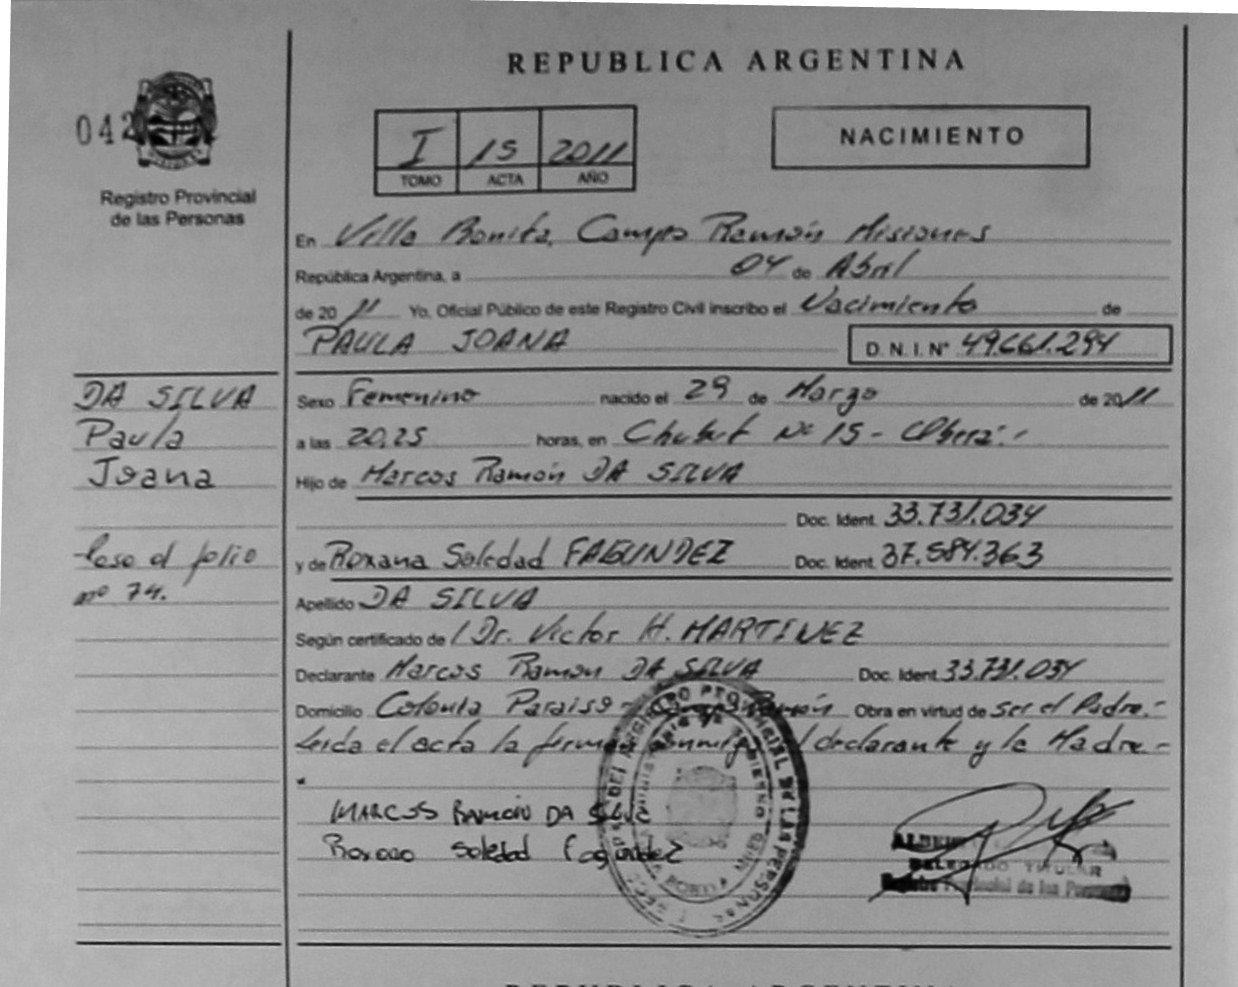 REPUBLICA ARGENTINA
042
Registro Provincial
de las Personas
I 15 2011
TOMO ACTA AÑO
NACIMIENTO
En Villa Bonita, Campo Ramón Misiones
República Argentina, a 04 de Abril
de 2011 Yo, Oficial Público de este Registro Civil inscribo el Nacimiento de
PAULA JOANA D. N. I. N° 49.661.294
DA SILVA
Paula
Joana
folio
nº 74.
Sexo Femenino nacido el 29 de Marzo de 2011
a las 20,25 horas, en Chubut Nº 15 - Oberá.-
Hijo de Marcos Ramón DA SILVA
Doc. Ident. 33.731.034
y de Roxana Soledad FAGUNDEZ Doc. Ident. 37.584.363
Apellido DA SILVA
Según certificado de / Dr. Victor H. MARTINEZ
Declarante Marcos Ramon DA SILVA Doc. Ident. 33.731.034
Domicilio Colonia Paraiso - Ramón Obra en virtud de ser el Padre.-
Leida el acta la firma declarante y la Madre.-
MARCOS RAMON DA SILVA
Soledad Fagundez
DELEGADO TITULAR
Registro Provincial de las Personas
REPUBLICA ARGENTINA